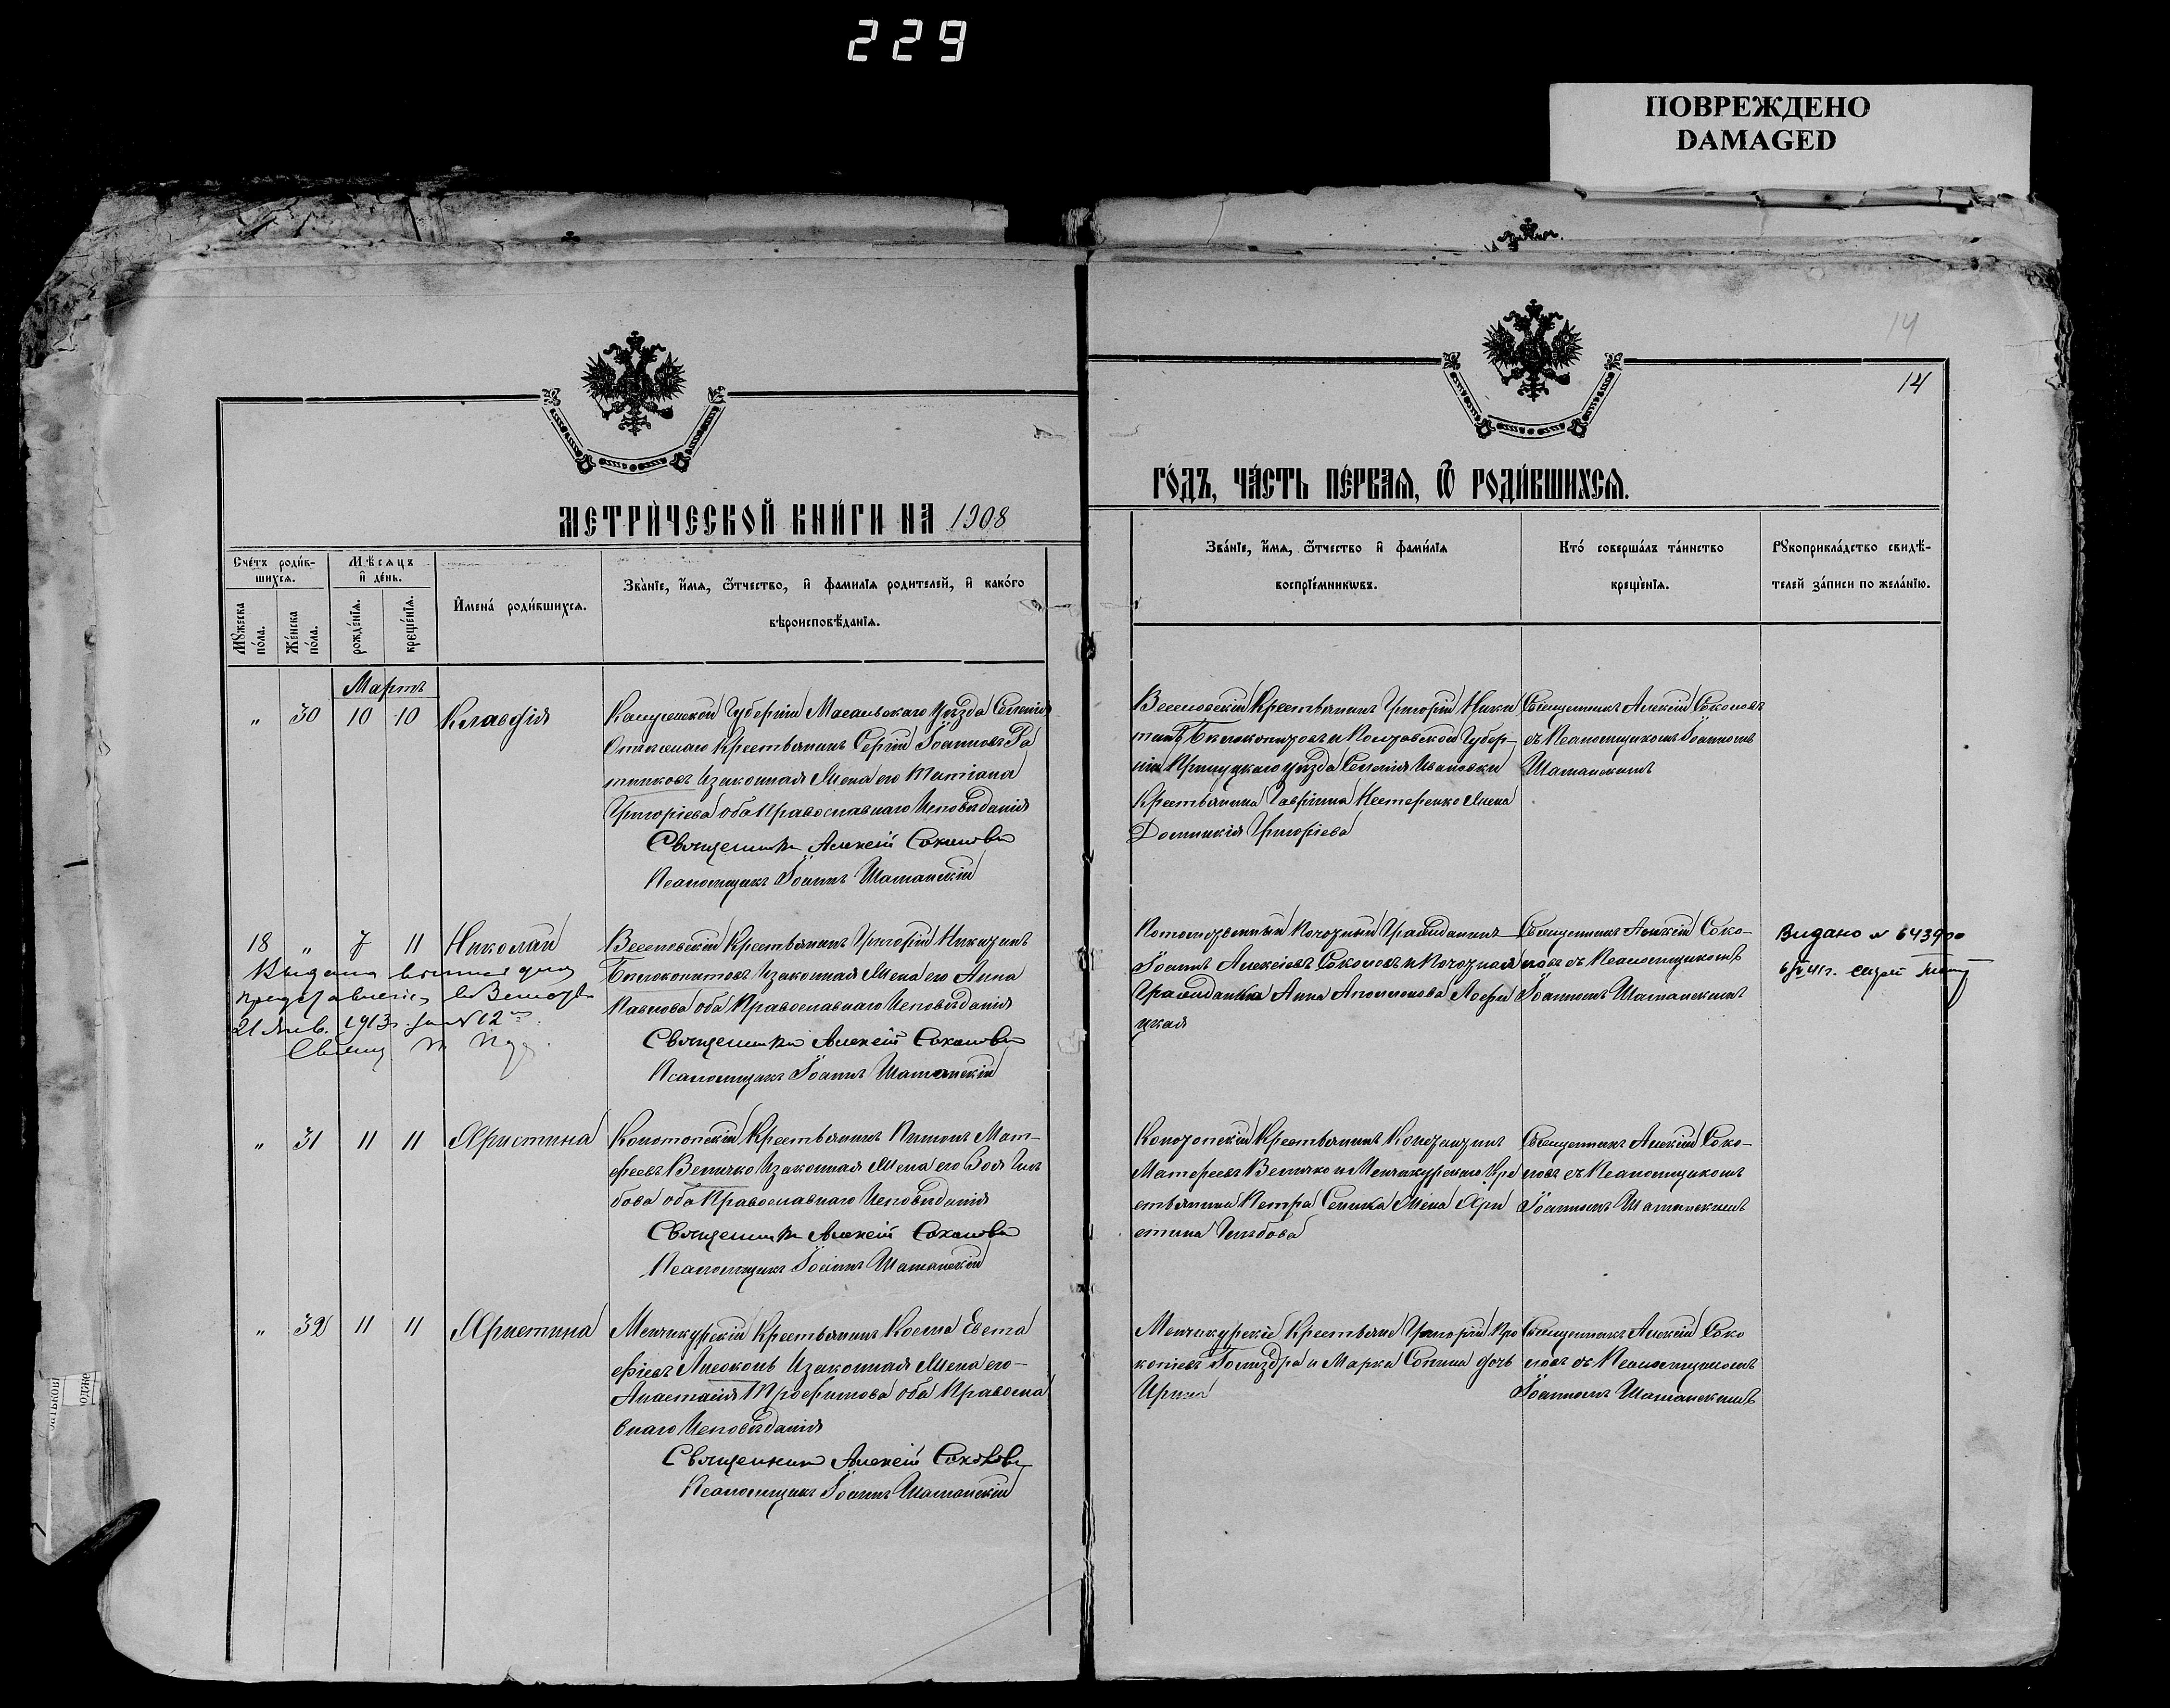 229
ПОВРЕЖДЕНО
DAMAGED
14
14
МЕТРИ́ЧЕСКОЙ КНИ́ГИ НА 1908
ГО́ДЪ, ЧА́СТЬ ПЕ́РВАѦ, Ѿ РОДИ́ВШИХСѦ.
Сче́тъ роди́в-
шихсѧ.
Мѣ́сѧцъ
и҆ де́нь.
Мꙋ́жеска
по́ла.
Же́нска
по́ла.
рожде́нїѧ.
креще́нїѧ.
И҆мена̀ роди́вшихсѧ.
Зва́нїе, и҆́мѧ, ѻ҆́тчество, и҆ фами́лїѧ родителей, и҆ како́го
вѣроисповѣ́данїѧ.
Зва́нїе, и҆́мѧ, ѻ҆́тчество и҆ фами́лїѧ
воспрїе́мникωвъ.
Кто́ соверша́лъ та́инство
креще́нїѧ.
Рꙋкоприкла́дство свидѣ́-
телей за́писи по жела́нїю.
Мартъ
" 30 10 10 Клавдія
Калужской Губерніи Масальскаго уѣзда Селенія
крестьянинъ Сергій Іоанновъ Ра
тниковъ И законная Жена его Татіана
Григоріева оба Православнаго Исповѣданія
Священникъ Алексій Соколовъ
Псаломщикъ Іоаннъ Шатанскій
Веселовскій Крестьянинъ Григорій Ники
тинъ Бѣлокопытовъ и Полтавской Губер-
ніи уѣзда Селенія Ивановки
Крестьянина Гавріила Нестеренко Жена
Домникія Григоріева
Священникъ Алексій Соколовъ
съ Псаломщикомъ Іоанномъ
Шатанскимъ
18 " 7 11 Николай
Веселовскій Крестьянинъ Григорій Никитинъ
Бѣлокопытовъ И законная Жена его Анна
Павлова оба Православнаго Исповѣданія
Священникъ Алексій Соколовъ
Псаломщикъ Іоаннъ Шатанскій
Выдана
21 Янв. 1913 г. за № 12
Потомственный Почетный Гражданинъ
Іоаннъ Алексіевъ Соколовъ и Почетная
Гражданка Анна Аполлонова
цкая
Священникъ Алексій Соко-
ловъ съ Псаломщикомъ
Іоанномъ Шатанскимъ
Видано № 643930
" 31 11 11 Христина
Конотопскій Крестьянинъ Пименъ Мат-
феевъ Величко И законная Жена его Зоя Глѣ
бова оба Православнаго Исповѣданія
Священникъ Алексій Соколовъ
Псаломщикъ Іоаннъ Шатанскій
Конотопскій Крестьянинъ
Матфеевъ Величко и Менчикурскаго Кре
стьянина Петра Жена Хри
стина Глѣбова
Священникъ Алексій Соко-
ловъ съ Псаломщикомъ
Іоанномъ Шатанскимъ
" 32 11 11 Христина
Менчикурскій Крестьянинъ Косма Евста
фіевъ Лисоконь И законная Жена его
Анастасія Трофимова оба Правосла
внаго Исповѣданія
Священникъ Алексій Соколовъ
Псаломщикъ Іоаннъ Шатанскій
Менчикурскіе Крестьяне Григорій Про
копіевъ и Марка дочь
Ирина
Священникъ Алексій Соко
ловъ съ Псаломщикомъ
Іоанномъ Шатанскимъ